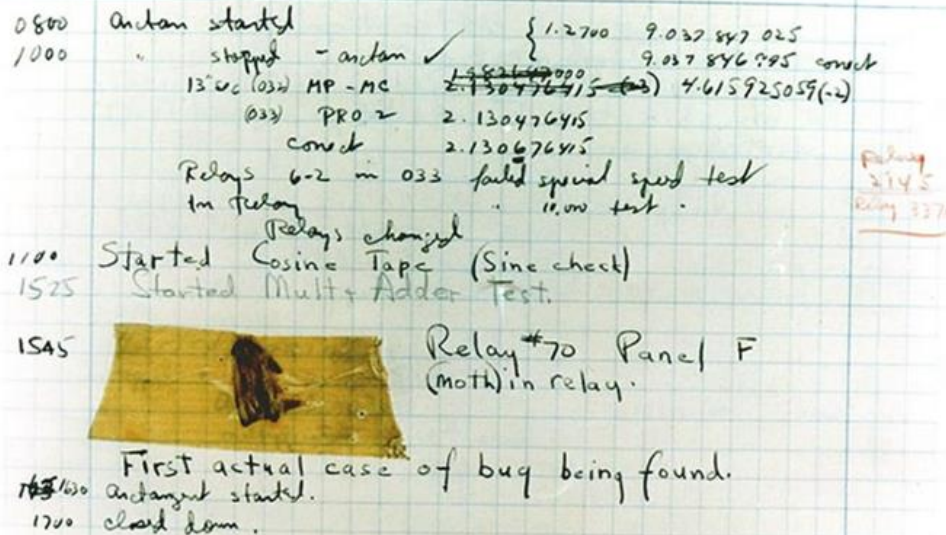 0800 antan started { 1.2700 9.037 847 025
1000 " stopped - antan ✓ 9.037 846 995 conect
13"uc (032) MP - MC 2.130476415 (-3) 4.615925059(-2)
(033) PRO 2 2.130476415
conect 2.130676415
Relays 6-2 in 033 failed special speed test
In Relay " 10.000 test .
Relay
2145
Relay 337
Relays changed
1100 Started Cosine Tape (Sine check)
1525 Started Mult + Adder Test.
1545 Relay #70 Panel F
(moth) in relay.
First actual case of bug being found.
1630 antangent started.
1700 closed down.